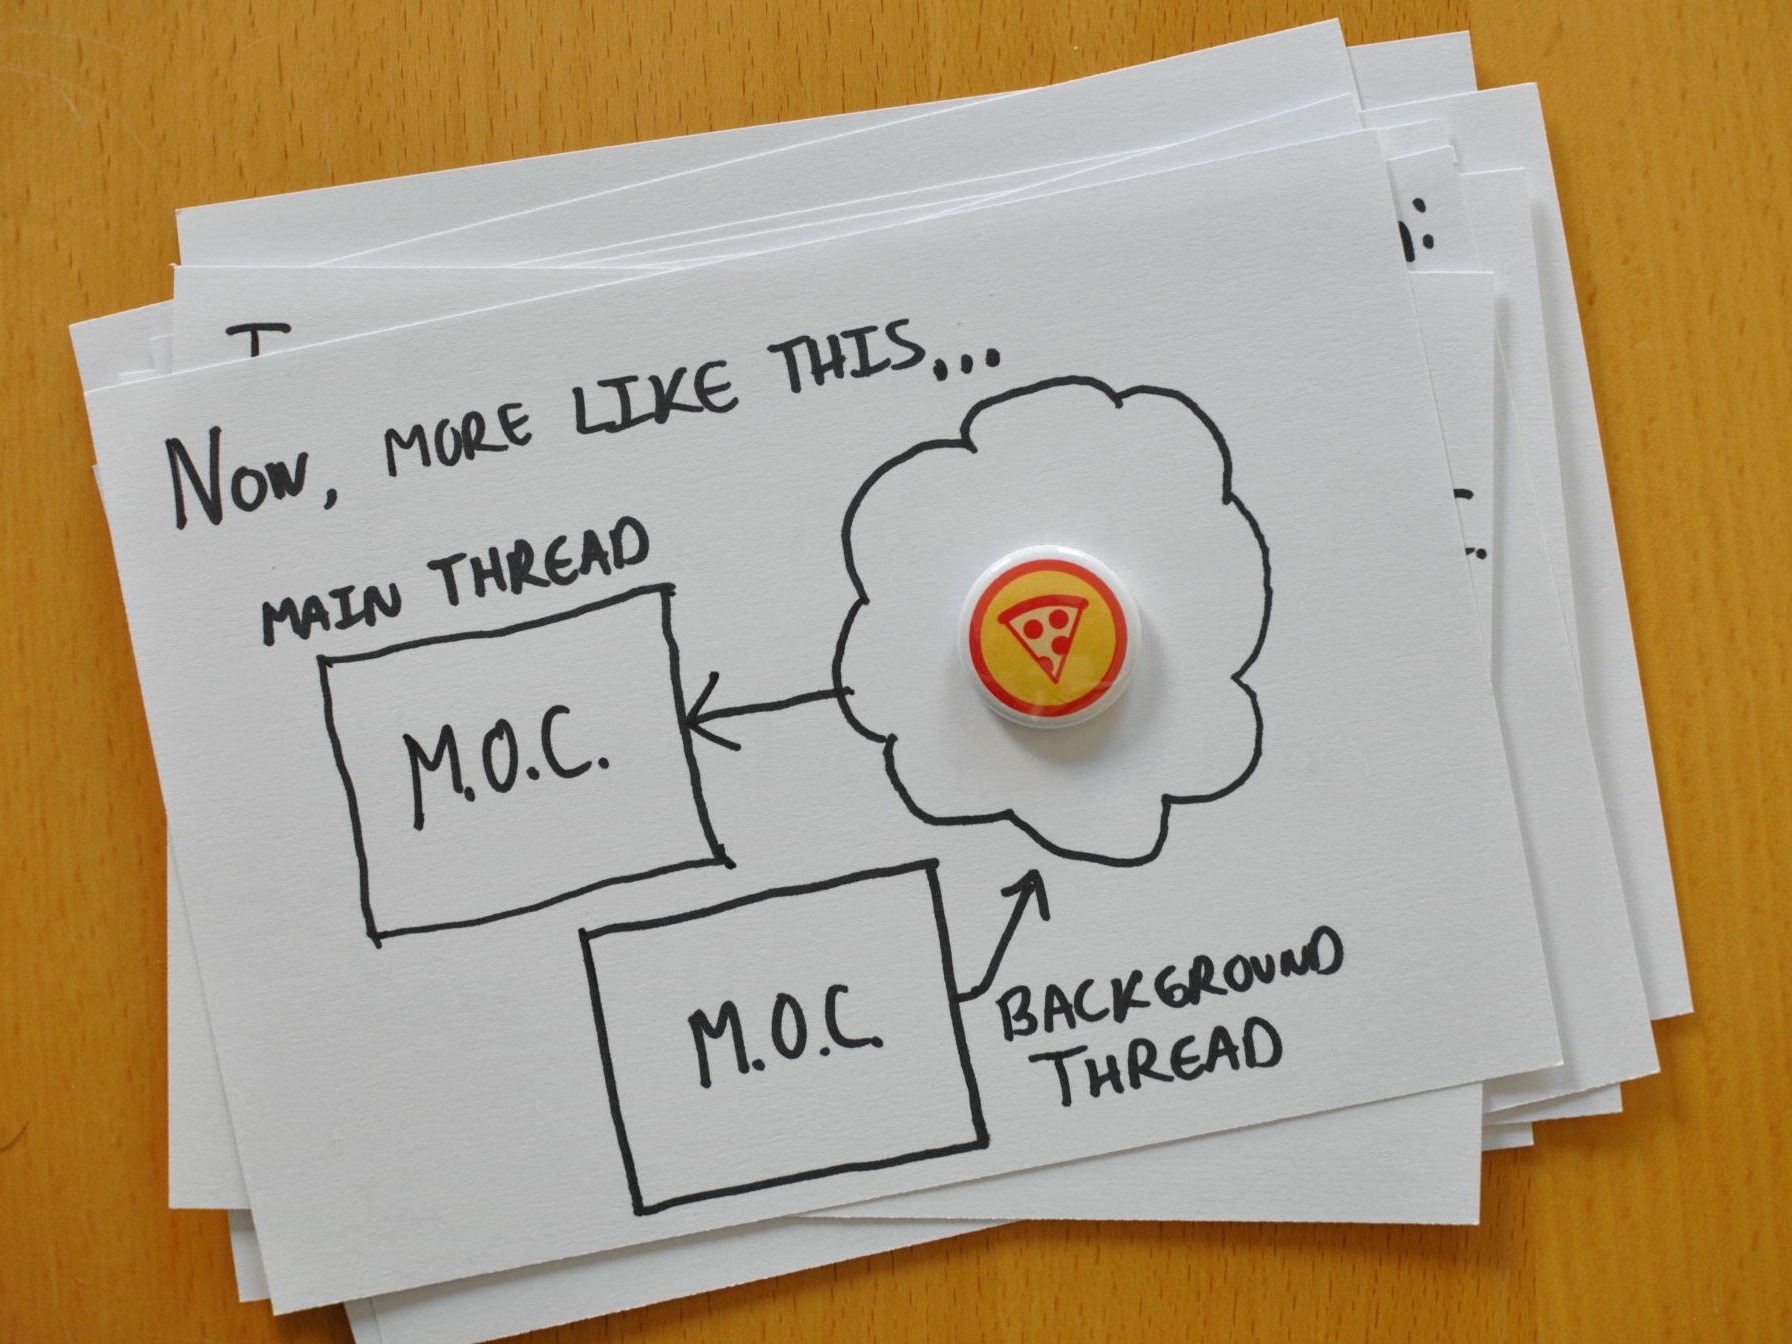 Now, MORE LIKE THIS...
MAIN THREAD
M.O.C.
M.O.C.
BACKGROUND
THREAD